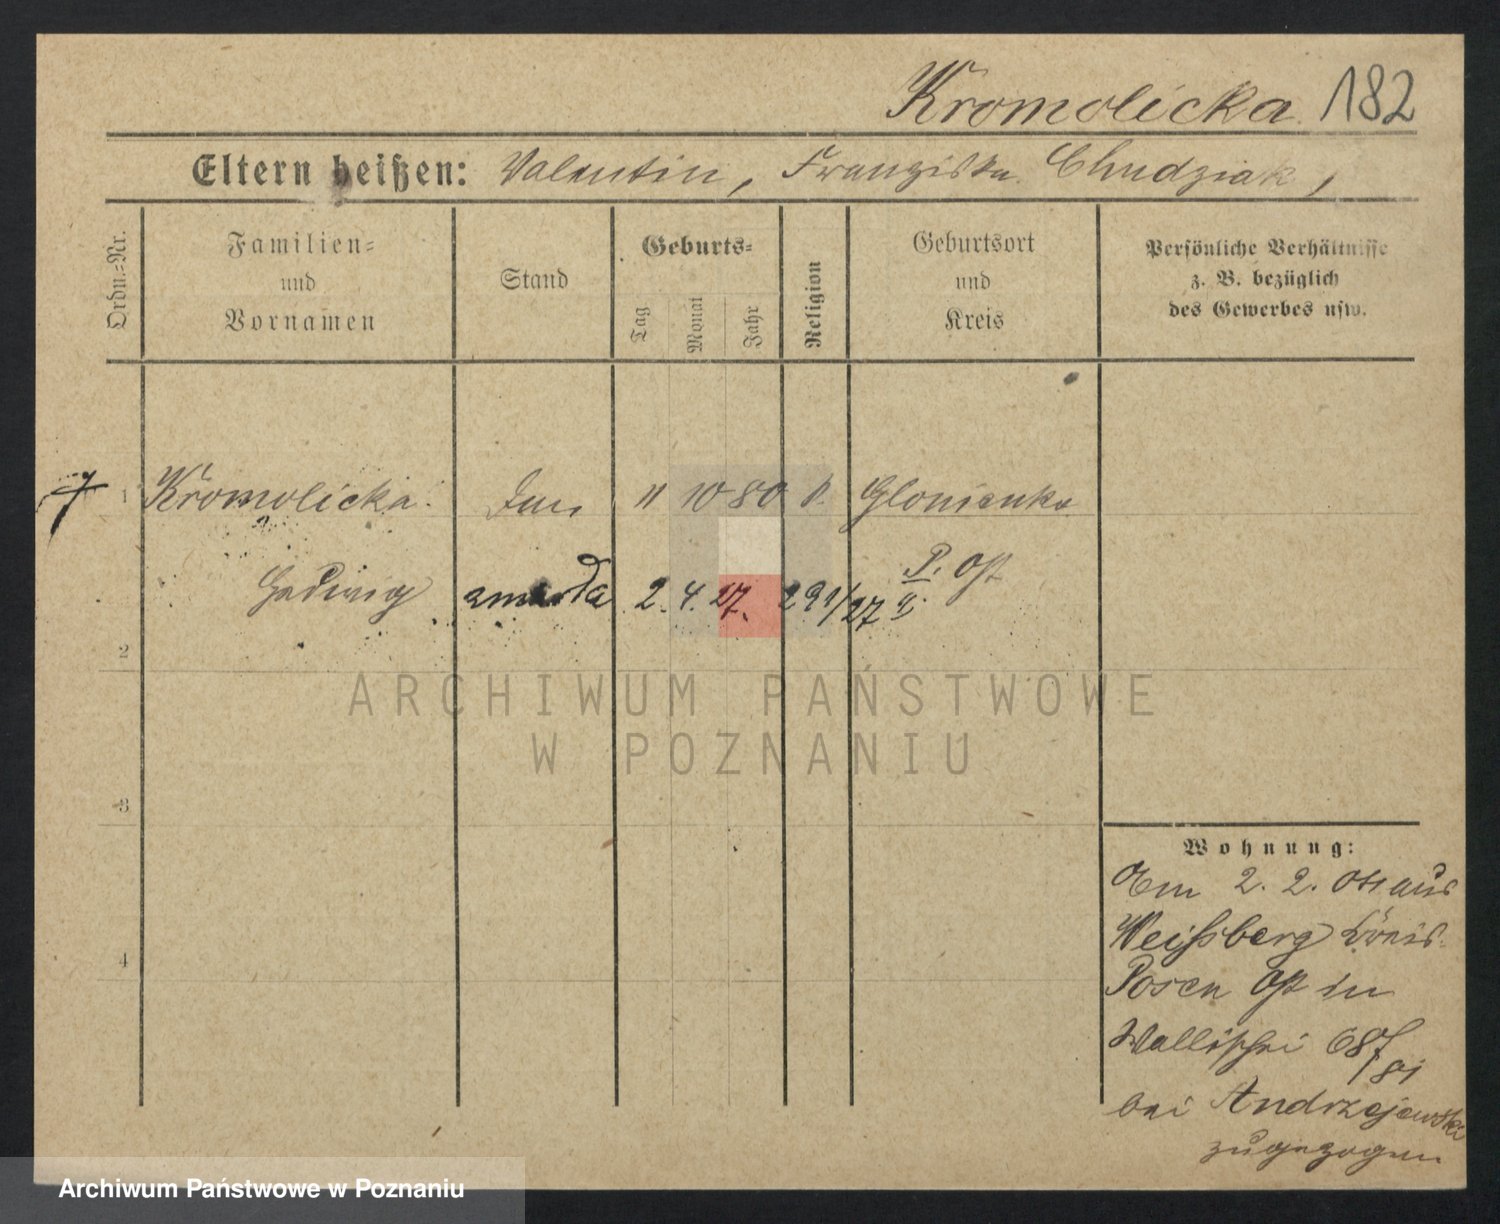 Kromolicka 182
Eltern heißen: Valentin, Franziska Chudziak,
Ordn.=Nr.
Familien=
und
Vornamen
Stand
Geburts=
Tag
Monat
Jahr
Religion
Geburtsort
und
Kreis
Persönliche Verhältnisse
z. B. bezüglich
des Gewerbes usw.
1 Kromolicka 11 10 80 k. Glonienko
Hedwig
P. Ost
zmarła 2. 4. 27. 291/27 II
2
3
4
Wohnung:
Am 2. 2. 01 aus
Weissberg Kreis
Posen Ost in
Wallischei 68/81
bei Andrzejewski
zugezogen
ARCHIWUM PAŃSTWOWE
W POZNANIU
Archiwum Państwowe w Poznaniu